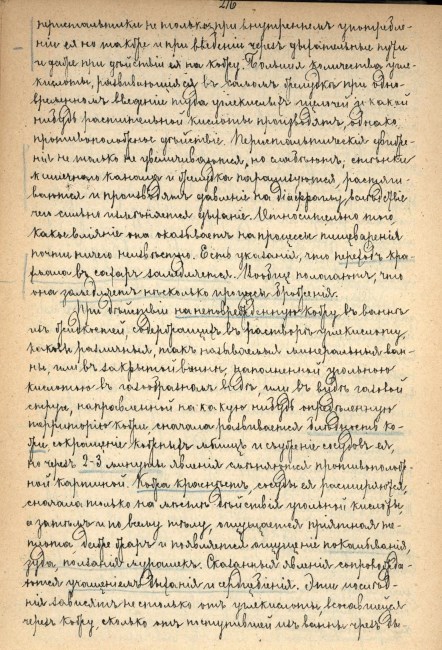 216
перистальтики не только при внутреннем употребле-
нии ея но также и при введении через дыхательные пути
и даже при действии ея на кожу. Большия количества угле-
кислоты, развивающияся в самом желудке при одно-
временном введении туда углекислых щелочей и какой
нибудь растительной кислоты производят, однако,
противоположное действие. Перистальтическия движе-
ния не только не увеличиваются, но слабеют, стенки
кишечного канала и желудка парализуются, растяги-
ваются и производят давление на діафрагму, вследствие
чего сильно
Относительно того,
какое влияние она оказывает на процессы пищеварения
почти ничего неизвестно. Есть указания, что переход кра-
хмала в сахар замедляется. Вообще полагают, что
она замедляет несколько процессы брожения.
При действии на неповрежденную кожу в ваннах
из жидкостей, содержащих в растворе углекислоту,
каковы различныя, так называемыя минеральныя ван-
ны, или в закрытой ванне, наполненной угольною
кислотою в газообразном виде, или в виде газовой
струи, направленной на какую нибудь определенную
территорию кожи, сначала развивается бледность ко-
жи, сокращение кожных мышц и сужение сосудов ея
но через 2-3 минуты явления сменяются противополож-
ной картиной. Кожа краснеет, сосуды ея расширяются,
сначала только на месте действия угольной кислоты,
а затем и по всему телу, ощущается приятная те-
плота даже жар и появляется ощущение покалывания,
зуда, ползания мурашек. Сказанныя явления сопровожда-
ются учащением дыхания и сердцебиения. Эти послед-
ния зависят не столько от углекислоты, всосавшейся
через кожу, сколько от поступившей из ванны через ды-